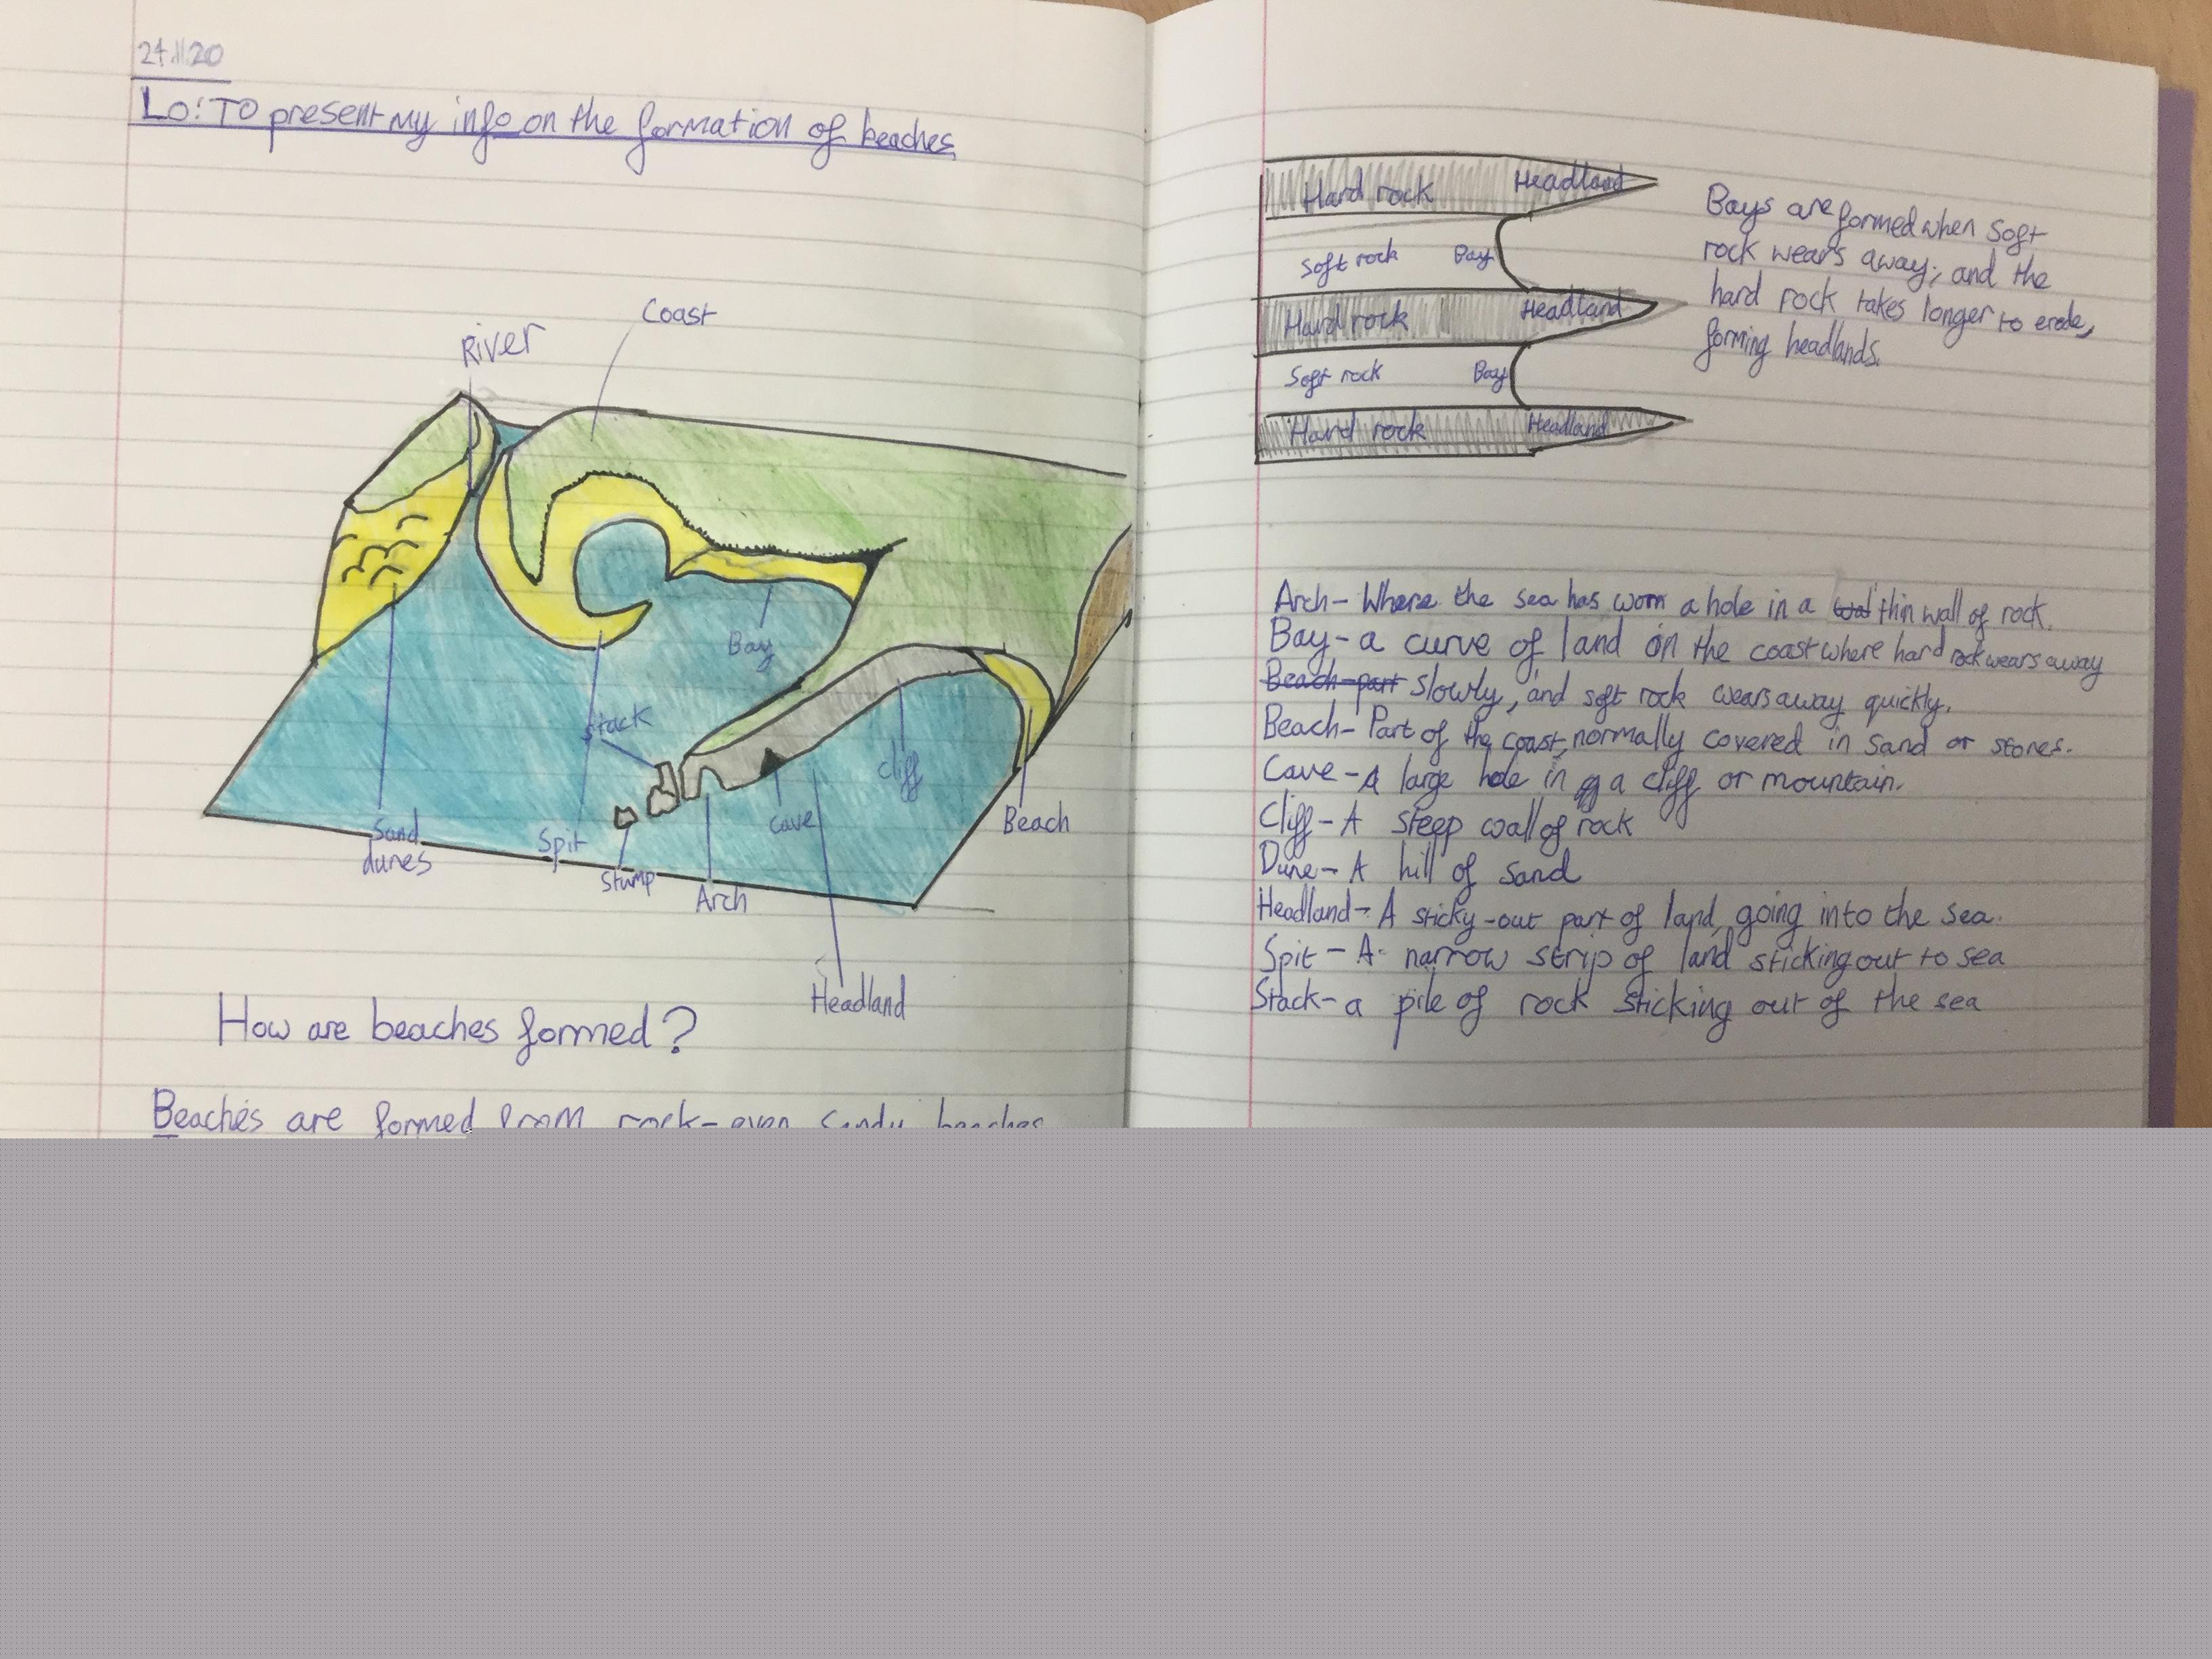 24.11.20
Lo: To present my info on the formation of beaches
River
Coast
Bay
Stack
Cliff
Cave
Beach
Sand
dunes
Spit
Stump
Arch
Headland
How are beaches formed?
Beaches are formed from rock- even sandy beaches
Hard rock Headland
Soft rock Bay
Hard rock Headland
Soft rock Bay
Hard rock Headland
Bays are formed when soft
rock wears away; and the
hard rock takes longer to erode,
forming headlands.
Arch- Where the sea has worn a hole in a thin wall of rock.
Bay- a curve of land on the coast where hard rock wears away
Beach- part slowly, and soft rock wears away quickly.
Beach- Part of the coast, normally covered in sand or stones.
Cave- A large hole in a cliff or mountain.
Cliff- A steep wall of rock
Dune- A hill of sand
Headland- A sticky-out part of land, going into the sea.
Spit- A narrow strip of land sticking out to sea
Stack- a pile of rock sticking out of the sea